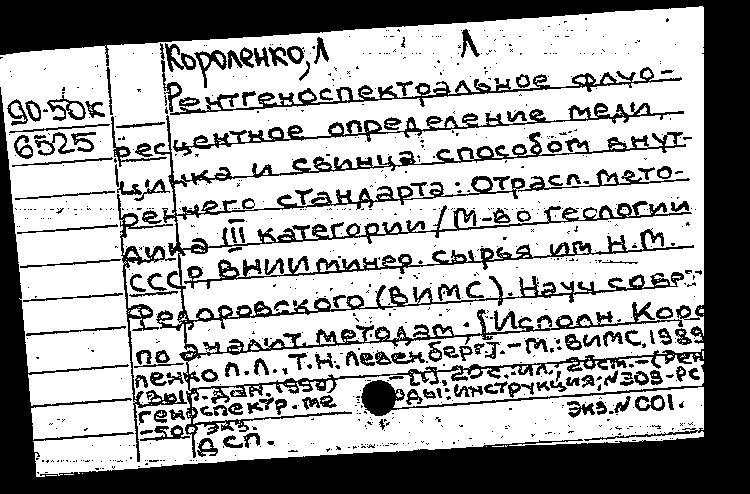 Короленко, Л Л
90-50К
6525
Рентгеноспектральное флуо-
ресцентное определение меди,
цинка и свинца способом внут-
реннего стандарта: Отрасл. мето-
дика III категории / М-во геологии
СССР, ВНИИ минер. сырья им. Н.М.
Федоровского (ВИМС). Науч совет
по аналит. методам; [Исполн. Коро
ленко Л.Л., Т.Н. Левенберг]. - М.: ВИМС, 1989
(Вып. дан. 1990) - [1], 20 с.: ил.; 20 см. - (Рен
геноспектр. ме оды: Инструкция; N 309-РС
-500 экз. Экз. N 001.
ДСП.